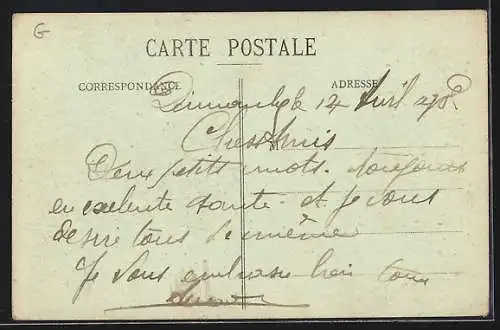 G
CARTE POSTALE
CORRESPONDANCE ADRESSE
Dimanche le 14 Avril
Chers Amis
Deux petits mots. toujours
en exelente sante. et je vous
desire tous de même
Je vous embrasse bien tous